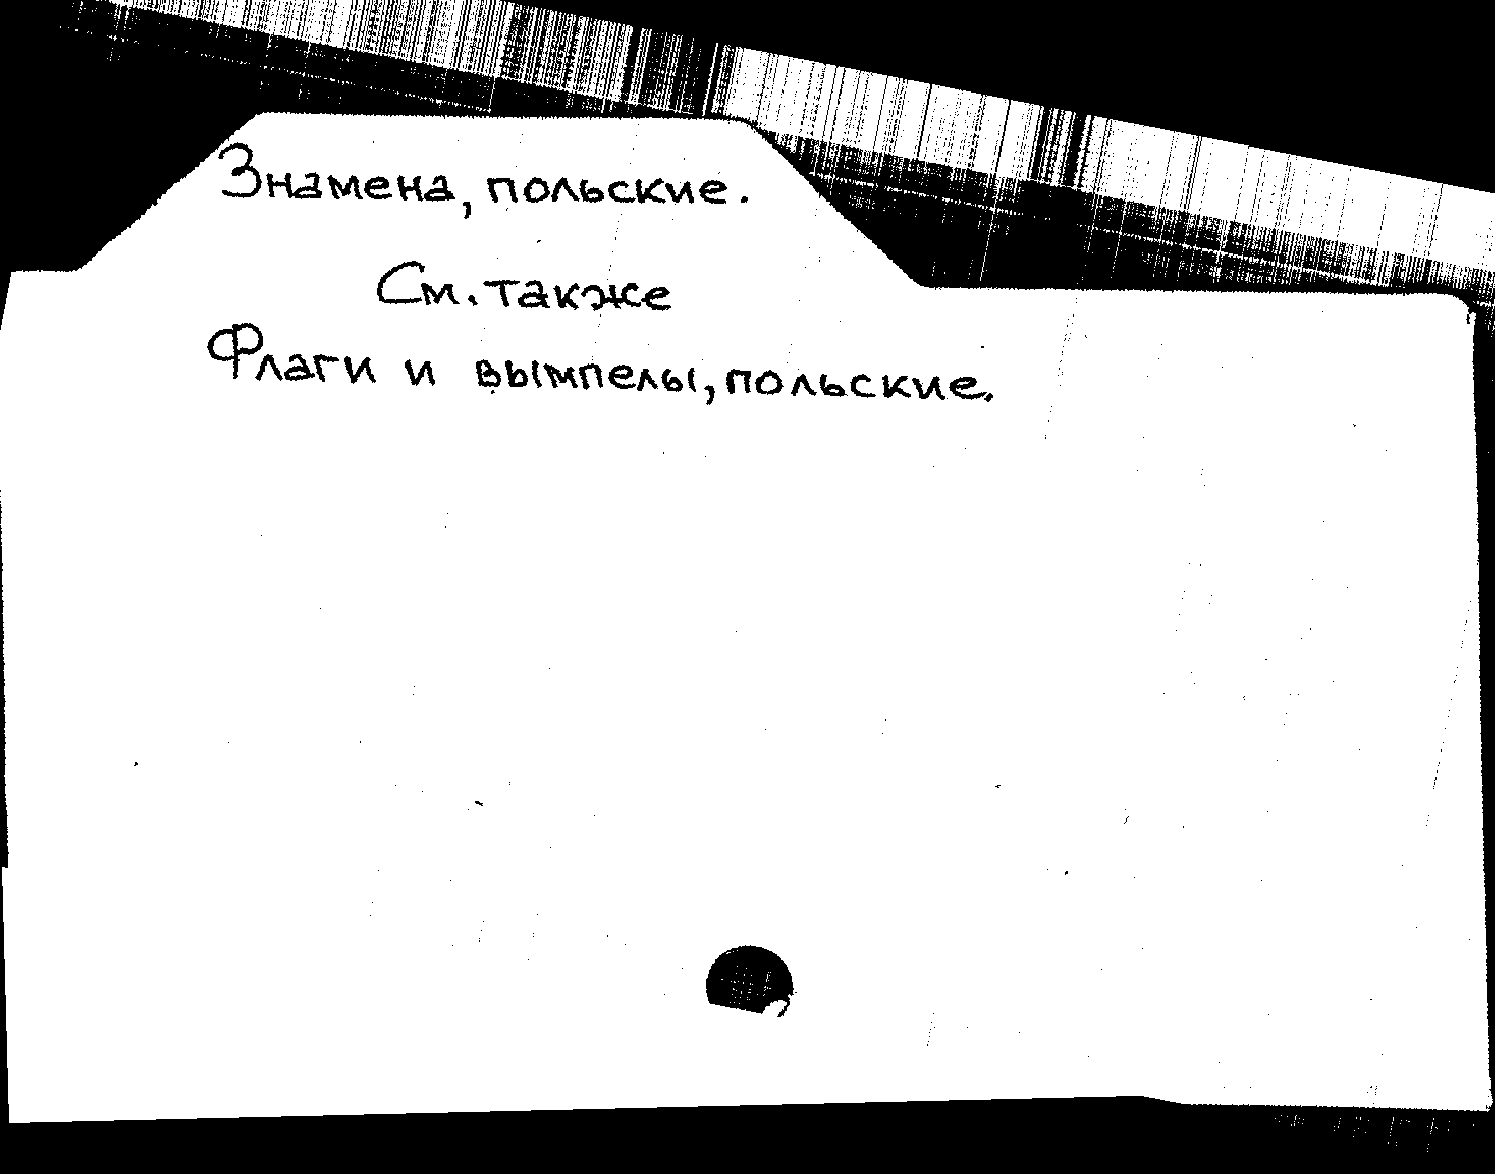 Знамена, польские.
См. также
Флаги и вымпелы, польские.